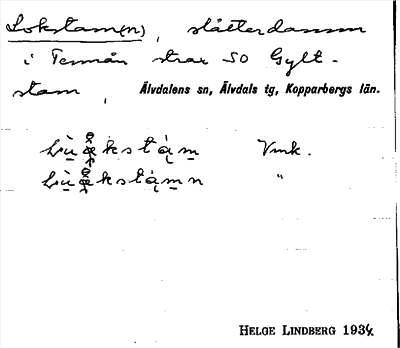 Lokstam(n), slåtterdamm
i Tennån strax SO Gylt-
stam, Älvdalens sn, Älvdals tg, Kopparbergs län.
Vmk.
"
HELGE LINDBERG 1934.